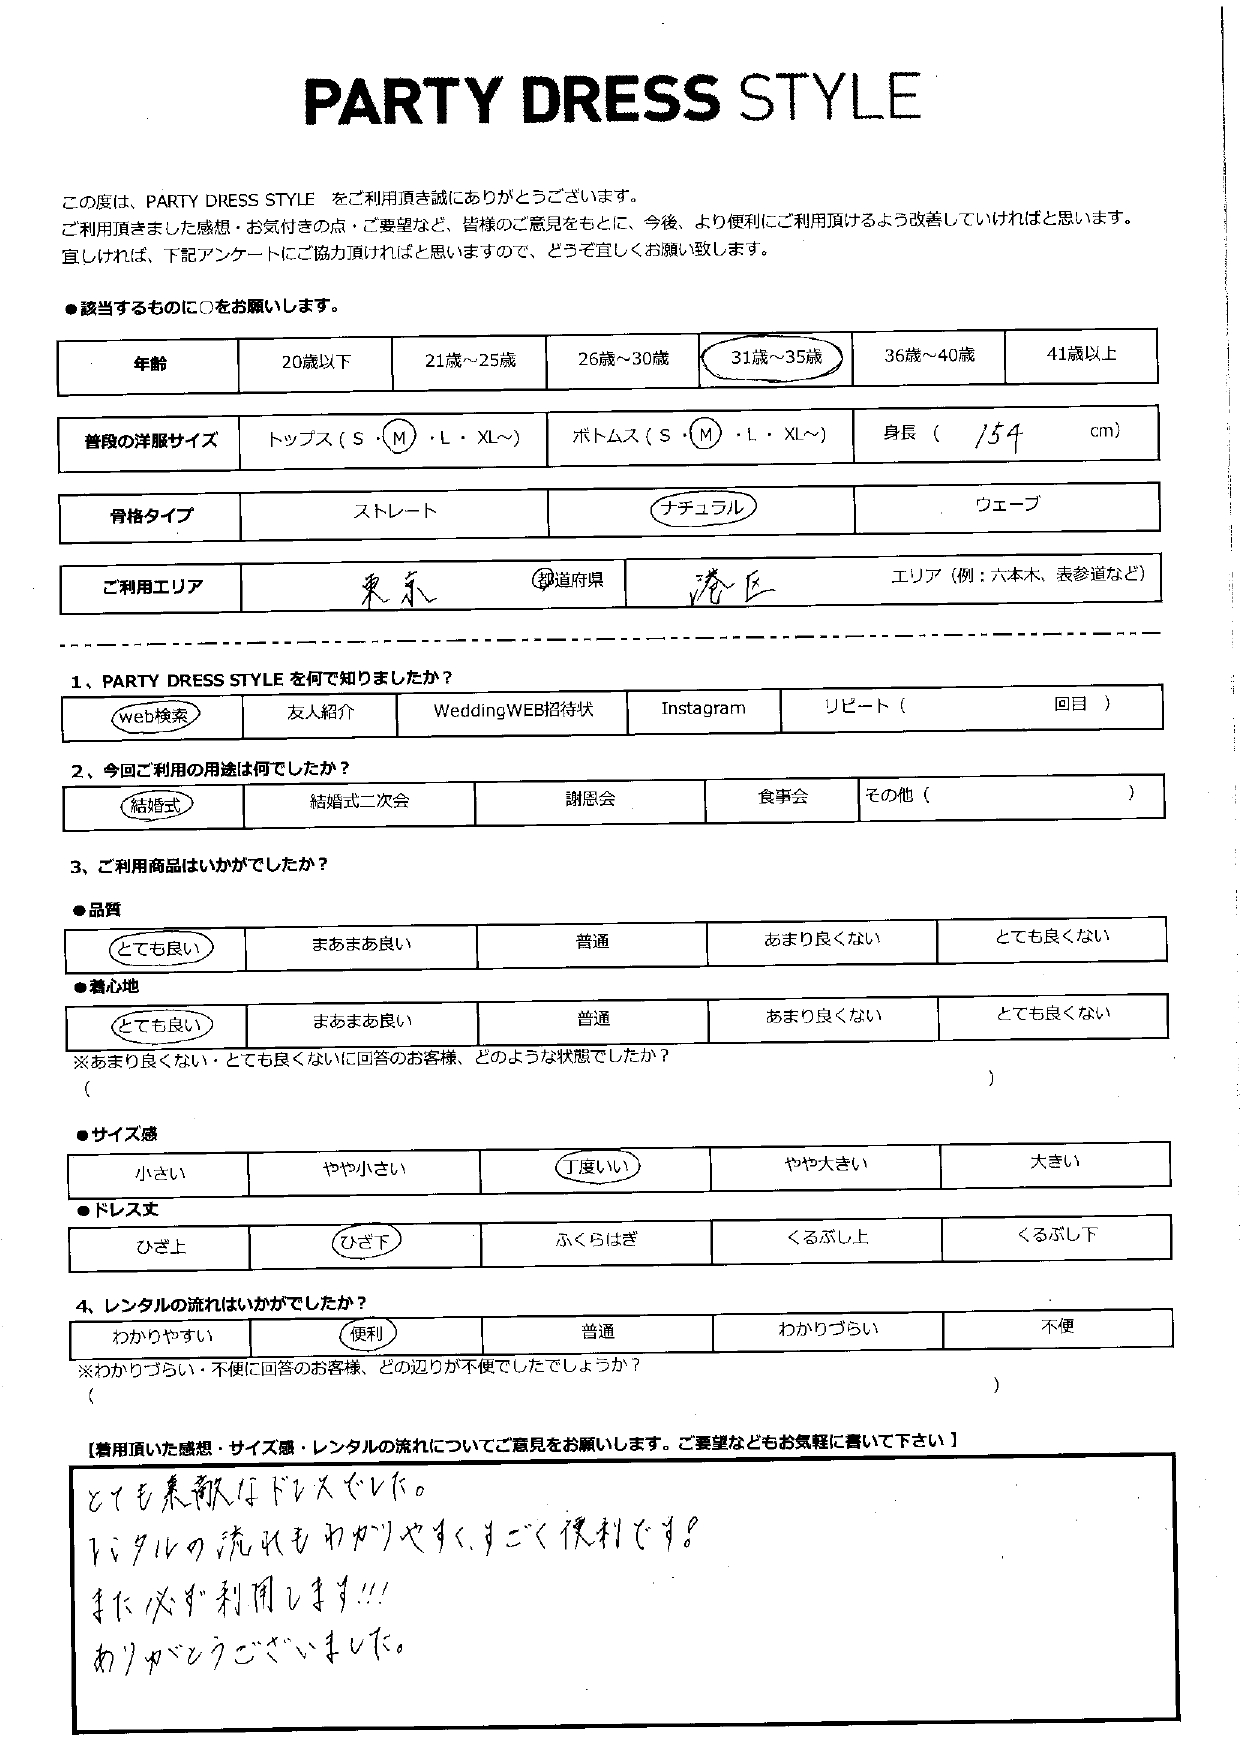 PARTY DRESS STYLE
この度は、PARTY DRESS STYLE をご利用頂き誠にありがとうございます。
ご利用頂きました感想・お気付きの点・ご要望など、皆様のご意見をもとに、今後、より便利にご利用頂けるよう改善していければと思います。
宜しければ、下記アンケートにご協力頂ければと思いますので、どうぞ宜しくお願い致します。
●該当するものに○をお願いします。
年齢 20歳以下 21歳～25歳 26歳～30歳 31歳～35歳 36歳～40歳 41歳以上
普段の洋服サイズ トップス ( S ・ M ・ L ・ XL～) ボトムス ( S ・ M ・ L ・ XL～) 身長 ( 154 cm)
骨格タイプ ストレート ナチュラル ウェーブ
ご利用エリア 東京 都道府県 港区 エリア（例：六本木、表参道など）
1、PARTY DRESS STYLE を何で知りましたか？
web検索 友人紹介 WeddingWEB招待状 Instagram リピート（ 回目 ）
2、今回ご利用の用途は何でしたか？
結婚式 結婚式二次会 謝恩会 食事会 その他（ ）
3、ご利用商品はいかがでしたか？
●品質
とても良い まあまあ良い 普通 あまり良くない とても良くない
●着心地
とても良い まあまあ良い 普通 あまり良くない とても良くない
※あまり良くない・とても良くないに回答のお客様、どのような状態でしたか？
（ ）
●サイズ感
小さい やや小さい 丁度いい やや大きい 大きい
●ドレス丈
ひざ上 ひざ下 ふくらはぎ くるぶし上 くるぶし下
4、レンタルの流れはいかがでしたか？
わかりやすい 便利 普通 わかりづらい 不便
※わかりづらい・不便に回答のお客様、どの辺りが不便でしたでしょうか？
（ ）
【着用頂いた感想・サイズ感・レンタルの流れについてご意見をお願いします。ご要望などもお気軽に書いて下さい】
とても素敵なドレスでした。
レンタルの流れもわかりやすく、すごく便利です!
また必ず利用します!!!
ありがとうございました。